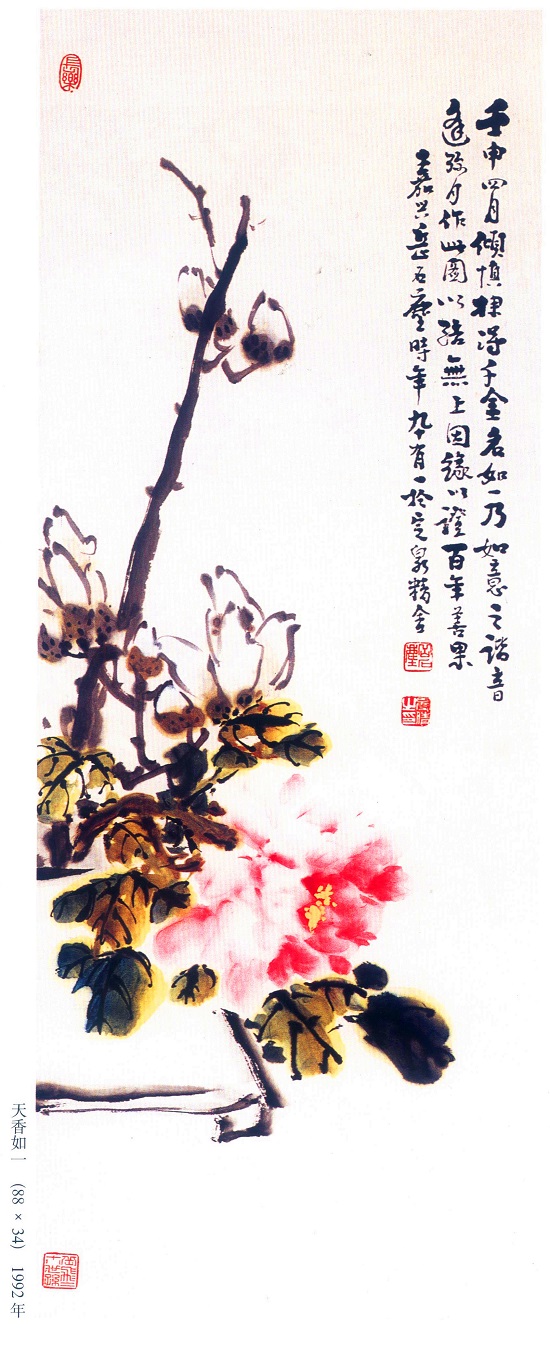 壬申四月倾慎棣得千金名如一乃如意之谐音
逢弥月作此图以结無上因缘以證百年善果
嘉兴岳石塵時年九十有一於定泉精舍
天香如一 (88 × 34) 1992年